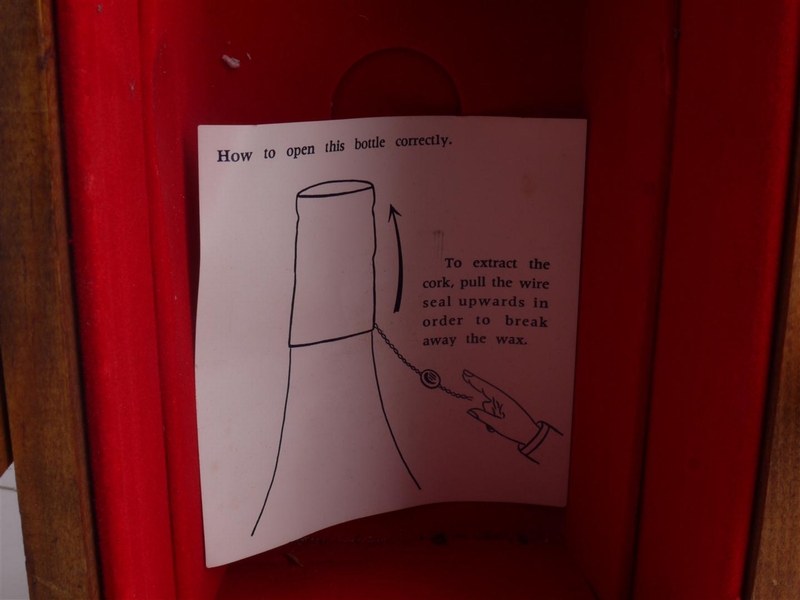 How to open this bottle correctly.
To extract the
cork, pull the wire
seal upwards in
order to break
away the wax.